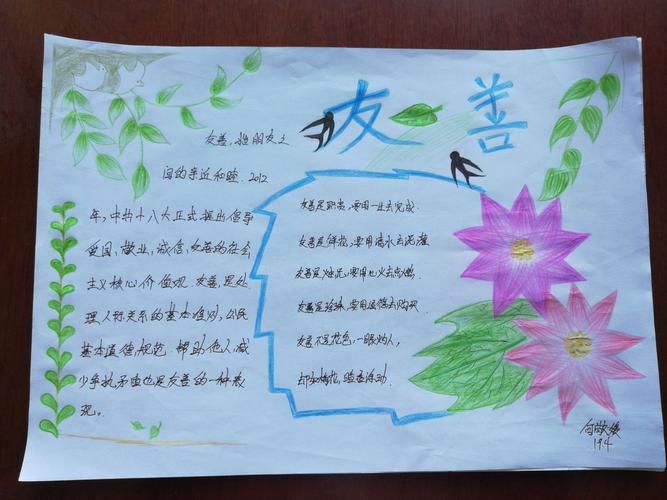 友善
友善,指朋友之
间的亲近和睦. 2012
年,中共十八大正式提出倡导
爱国、敬业、诚信、友善的社会
主义核心价值观. 友善,是处
理人际关系的基本准则,公民
基本道德规范. 帮助他人,减
少争执矛盾也是友善的一种表
现。
友善是职责,要用一生去完成.
友善是鲜花,要用清水去浇灌
友善是,要用心火去
友善是,要用去
友善不是花色,一眼劝人,
却如梅花,暗香浮动.
19.4